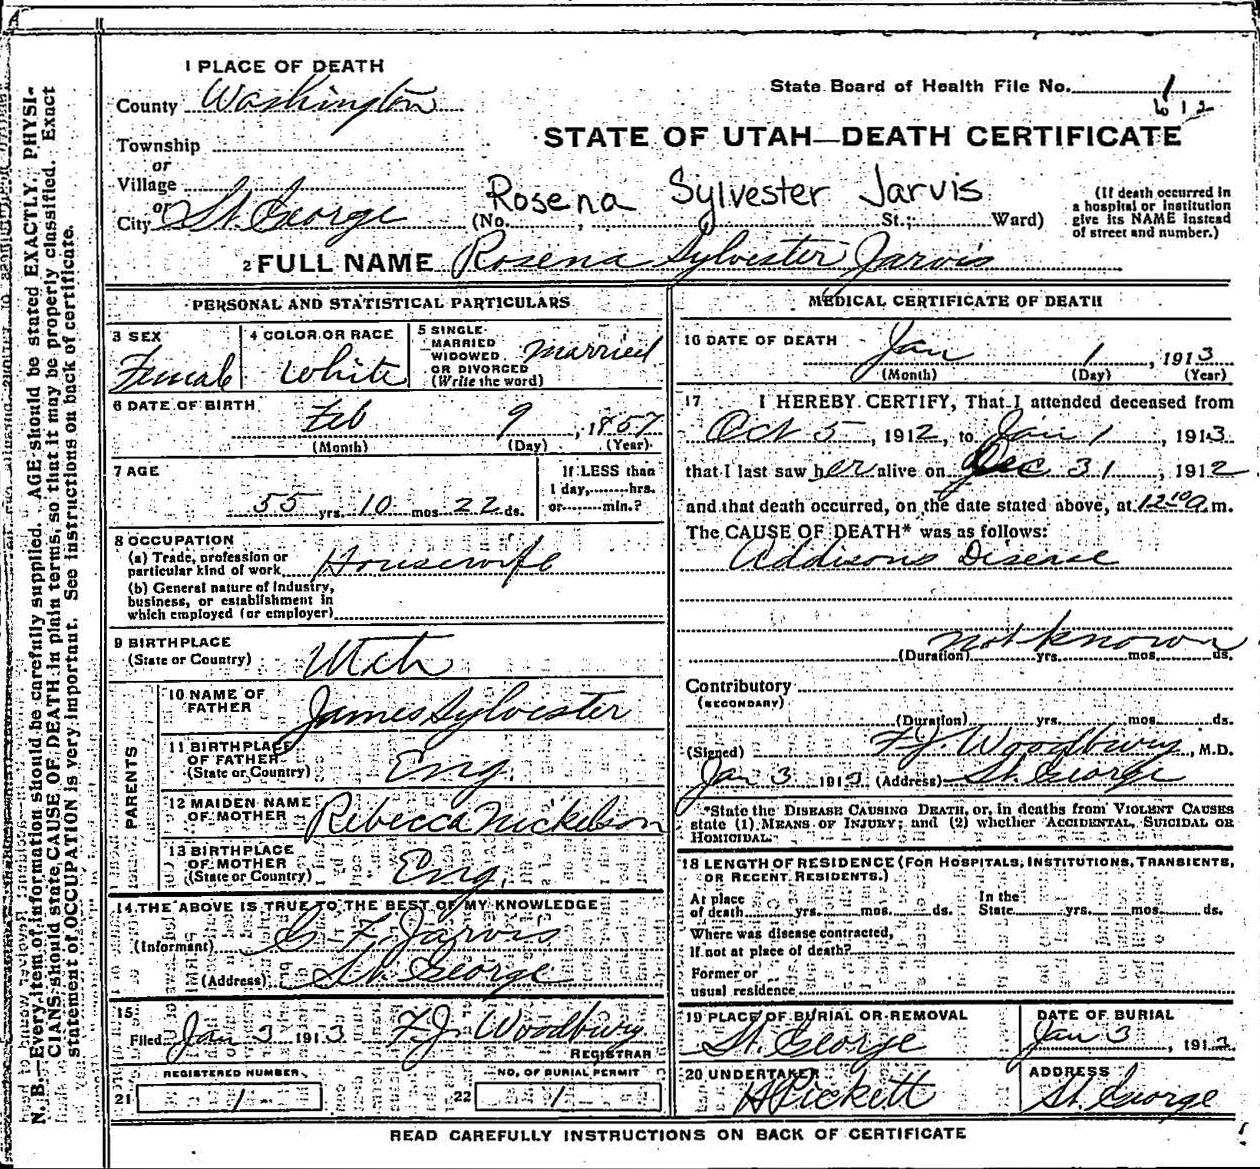 1 PLACE OF DEATH
County Washington
Township
or
Village
or
City St. George
State Board of Health File No. 1
612
STATE OF UTAH—DEATH CERTIFICATE
Rosena Sylvester Jarvis
(No. , St.; Ward)
(If death occurred in
a hospital or institution
give its NAME instead
of street and number.)
2 FULL NAME Rosena Sylvester Jarvis
PERSONAL AND STATISTICAL PARTICULARS
3 SEX
Female
4 COLOR OR RACE
White
5 SINGLE
MARRIED
WIDOWED
OR DIVORCED
(Write the word)
Married
6 DATE OF BIRTH
Feb 9, 1857
(Month) (Day) (Year)
7 AGE
55 yrs. 10 mos. 22 ds.
If LESS than
1 day, hrs.
or min.?
8 OCCUPATION
(a) Trade, profession or
particular kind of work Housewife
(b) General nature of industry,
business, or establishment in
which employed (or employer)
9 BIRTHPLACE
(State or Country) Utah
PARENTS
10 NAME OF
FATHER James Sylvester
11 BIRTHPLACE
OF FATHER
(State or Country) Eng.
12 MAIDEN NAME
OF MOTHER Rebecca Nickelson
13 BIRTHPLACE
OF MOTHER
(State or Country) Eng.
14 THE ABOVE IS TRUE TO THE BEST OF MY KNOWLEDGE
(Informant) G. F. Jarvis
(Address) St. George
15
Filed Jan 3 1913 F. J. Woodbury
REGISTRAR
REGISTERED NUMBER
21 1
NO. OF BURIAL PERMIT
22 1
MEDICAL CERTIFICATE OF DEATH
16 DATE OF DEATH
Jan 1, 1913
(Month) (Day) (Year)
17 I HEREBY CERTIFY, That I attended deceased from
Oct 5, 1912, to Jan 1, 1913
that I last saw her alive on Dec 31, 1912
and that death occurred, on the date stated above, at 12 10 a.m.
The CAUSE OF DEATH* was as follows:
Addisons Disease
not known
(Duration) yrs. mos. ds.
Contributory
(SECONDARY)
(Duration) yrs. mos. ds.
(Signed) F. J. Woodbury, M.D.
Jan 3 1913 (Address) St. George
*State the DISEASE CAUSING DEATH, or, in deaths from VIOLENT CAUSES
state (1) MEANS OF INJURY; and (2) whether ACCIDENTAL, SUICIDAL OR
HOMICIDAL.
18 LENGTH OF RESIDENCE (FOR HOSPITALS, INSTITUTIONS, TRANSIENTS,
OR RECENT RESIDENTS.)
At place
of death yrs. mos. ds.
In the
State yrs. mos. ds.
Where was disease contracted,
If not at place of death?
Former or
usual residence
19 PLACE OF BURIAL OR REMOVAL
St. George
DATE OF BURIAL
Jan 3, 1913
20 UNDERTAKER
H Pickett
ADDRESS
St. George
READ CAREFULLY INSTRUCTIONS ON BACK OF CERTIFICATE
N. B.—Every item of information should be carefully supplied. AGE should be stated EXACTLY. PHYSI-
CIANS should state CAUSE OF DEATH in plain terms, so that it may be properly classified. Exact
statement of OCCUPATION is very important. See instructions on back of certificate.